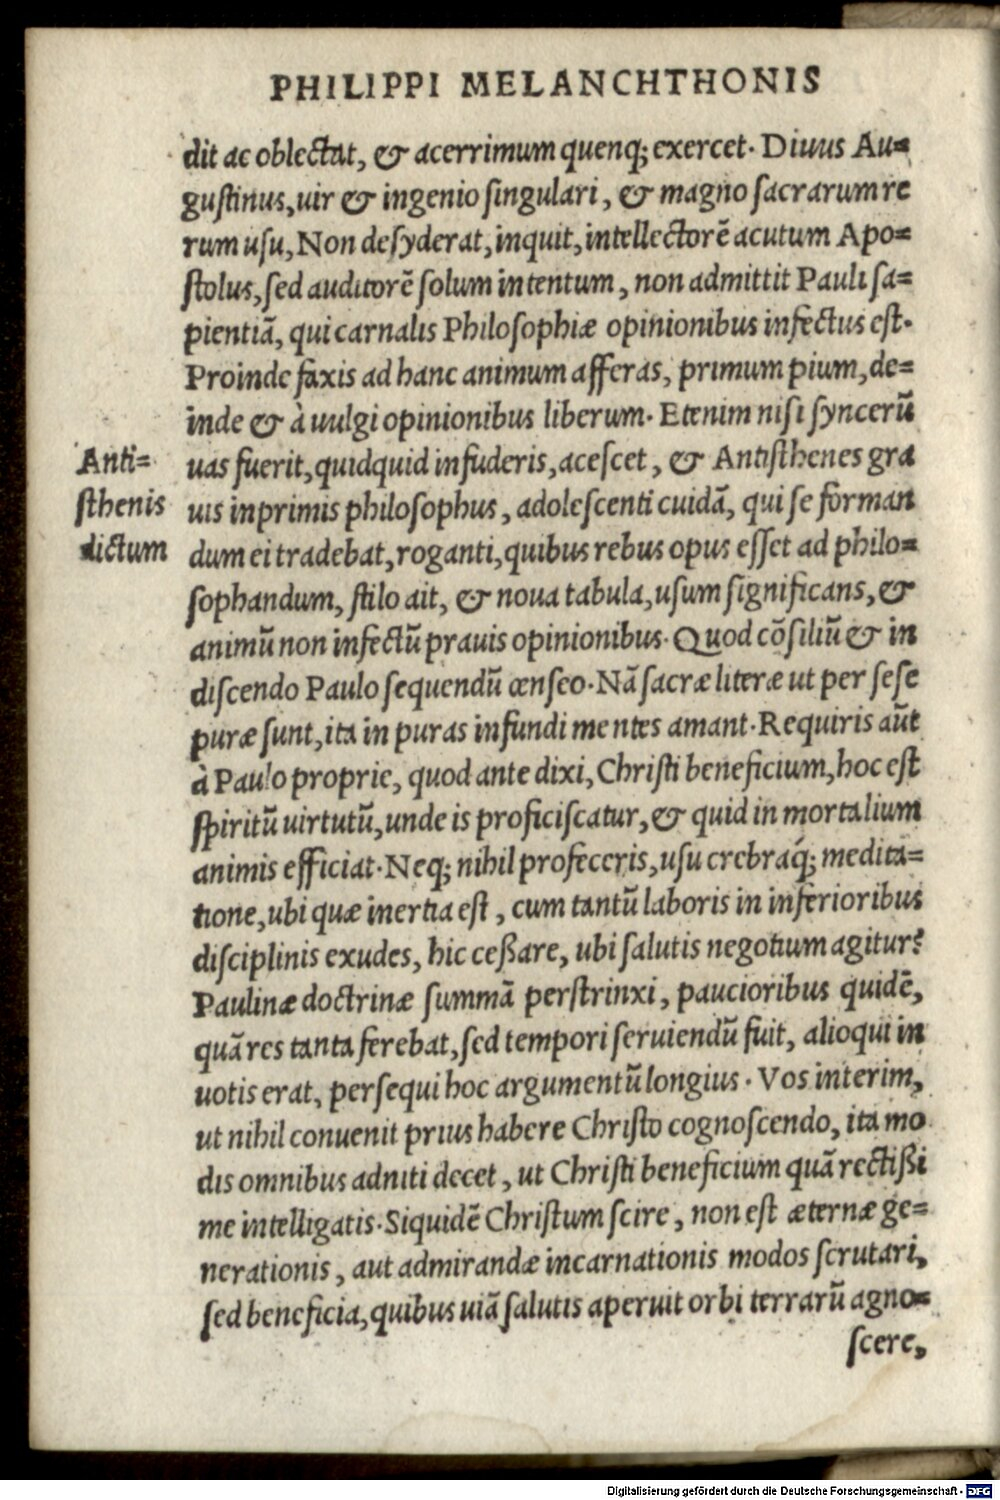 PHILIPPI MELANCHTHONIS
dit ac oblectat, & acerrimum quenq; exercet. Diuus Au=
gustinus, uir & ingenio singulari, & magno sacrarum re
rum usu, Non desyderat, inquit, intellectorē acutum Apo=
stolus, sed auditorē solum intentum, non admittit Pauli sa=
pientiā, qui carnalis Philosophiæ opinionibus infectus est.
Proinde faxis ad hanc animum afferas, primum pium, de=
inde & à uulgi opinionibus liberum. Etenim nisi syncerū
uas fuerit, quidquid infuderis, acescet, & Antisthenes gra
uis inprimis philosophus, adolescenti cuidā, qui se forman
dum ei tradebat, roganti, quibus rebus opus esset ad philo=
sophandum, stilo ait, & noua tabula, usum significans, &
animū non infectū prauis opinionibus. Quod cōsiliū & in
discendo Paulo sequendū censeo. Nā sacræ literæ ut per sese
puræ sunt, ita in puras infundi mentes amant. Requiris aūt
à Paulo proprie, quod ante dixi, Christi beneficium, hoc est
spiritū uirtutū, unde is proficiscatur, & quid in mortalium
animis efficiat. Neq; nihil profeceris, usu crebraq́; medita=
tione, ubi quæ inertia est, cum tantū laboris in inferioribus
disciplinis exudes, hic ceßare, ubi salutis negotium agitur?
Paulinæ doctrinæ summā perstrinxi, paucioribus quidē,
quā res tanta ferebat, sed tempori seruiendū fuit, alioqui in
uotis erat, persequi hoc argumentū longius. Vos interim,
ut nihil conuenit prius habere Christo cognoscendo, ita mo
dis omnibus adniti decet, ut Christi beneficium quā rectißi
me intelligatis. Siquidē Christum scire, non est æternæ ge=
nerationis, aut admirandæ incarnationis modos scrutari,
sed beneficia, quibus uiā salutis aperuit orbi terrarū agno=
scere,
Anti=
sthenis
dictum
Digitalisierung gefördert durch die Deutsche Forschungsgemeinschaft - DFG